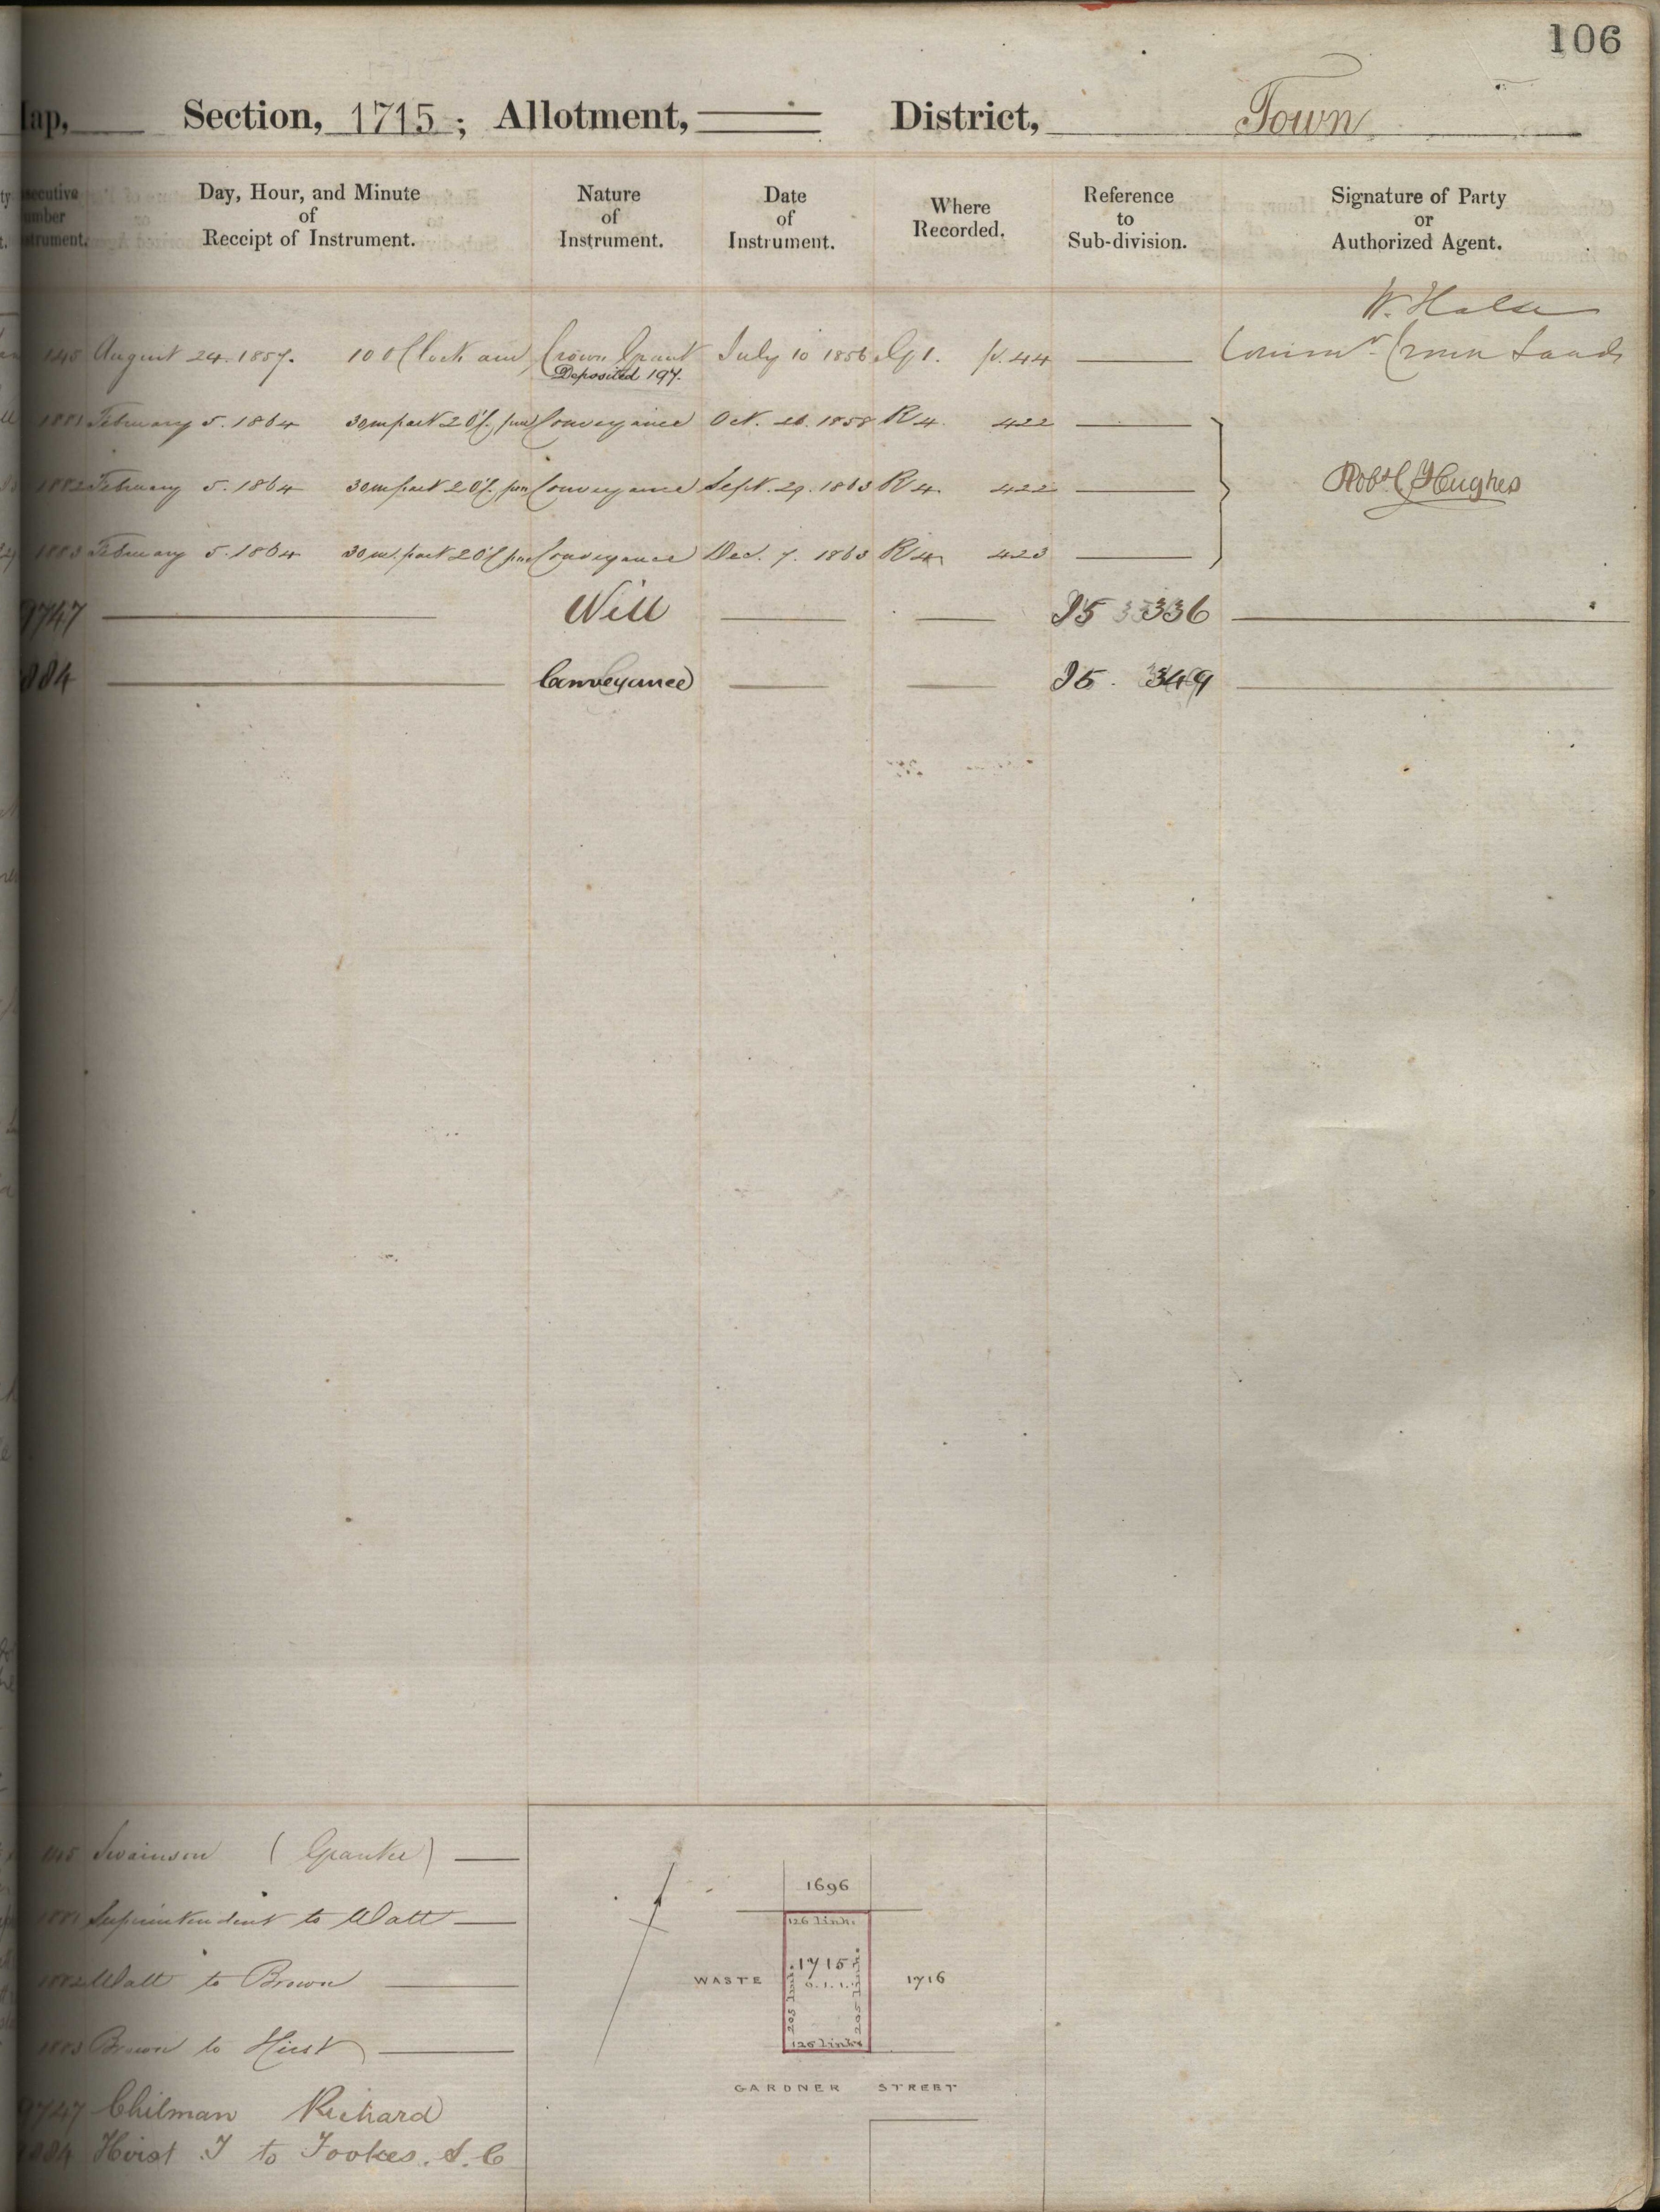 106
Section, 1715; Allotment, District, Town
Day, Hour, and Minute of Receipt of Instrument.
Nature of Instrument.
Date of Instrument.
Where Recorded.
Reference to Sub-division.
Signature of Party or Authorized Agent.
W. Halse
145 August 24. 1857. 10 O'Clock am Crown Grant July 10 1856 G 1. p. 44 Commr. Crown Lands
Deposited 197.
1881 February 5. 1864 30 m past 2 O'C. pm Conveyance Oct. 26. 1858 R 4. 422
1882 February 5. 1864 30 m past 2 O'C. pm Conveyance Sept. 29. 1863 R 4. 422 Robt. Hughes
1883 February 5. 1864 30 m. past 2 O'C pm Conveyance Dec. 7. 1863 R 4. 423
9747 Will I5 336
Conveyance I5. 349
145 Swainson (Grantee)
1881 Superintendent to Watt
1882 Watt to Brown
1883 Brown to Hirst
9747 Chilman Richard
Hirst J to Fookes. S. C
1696
126 links
1715
0.1.1.
205 links
205 links
126 links
WASTE
1716
GARDNER STREET